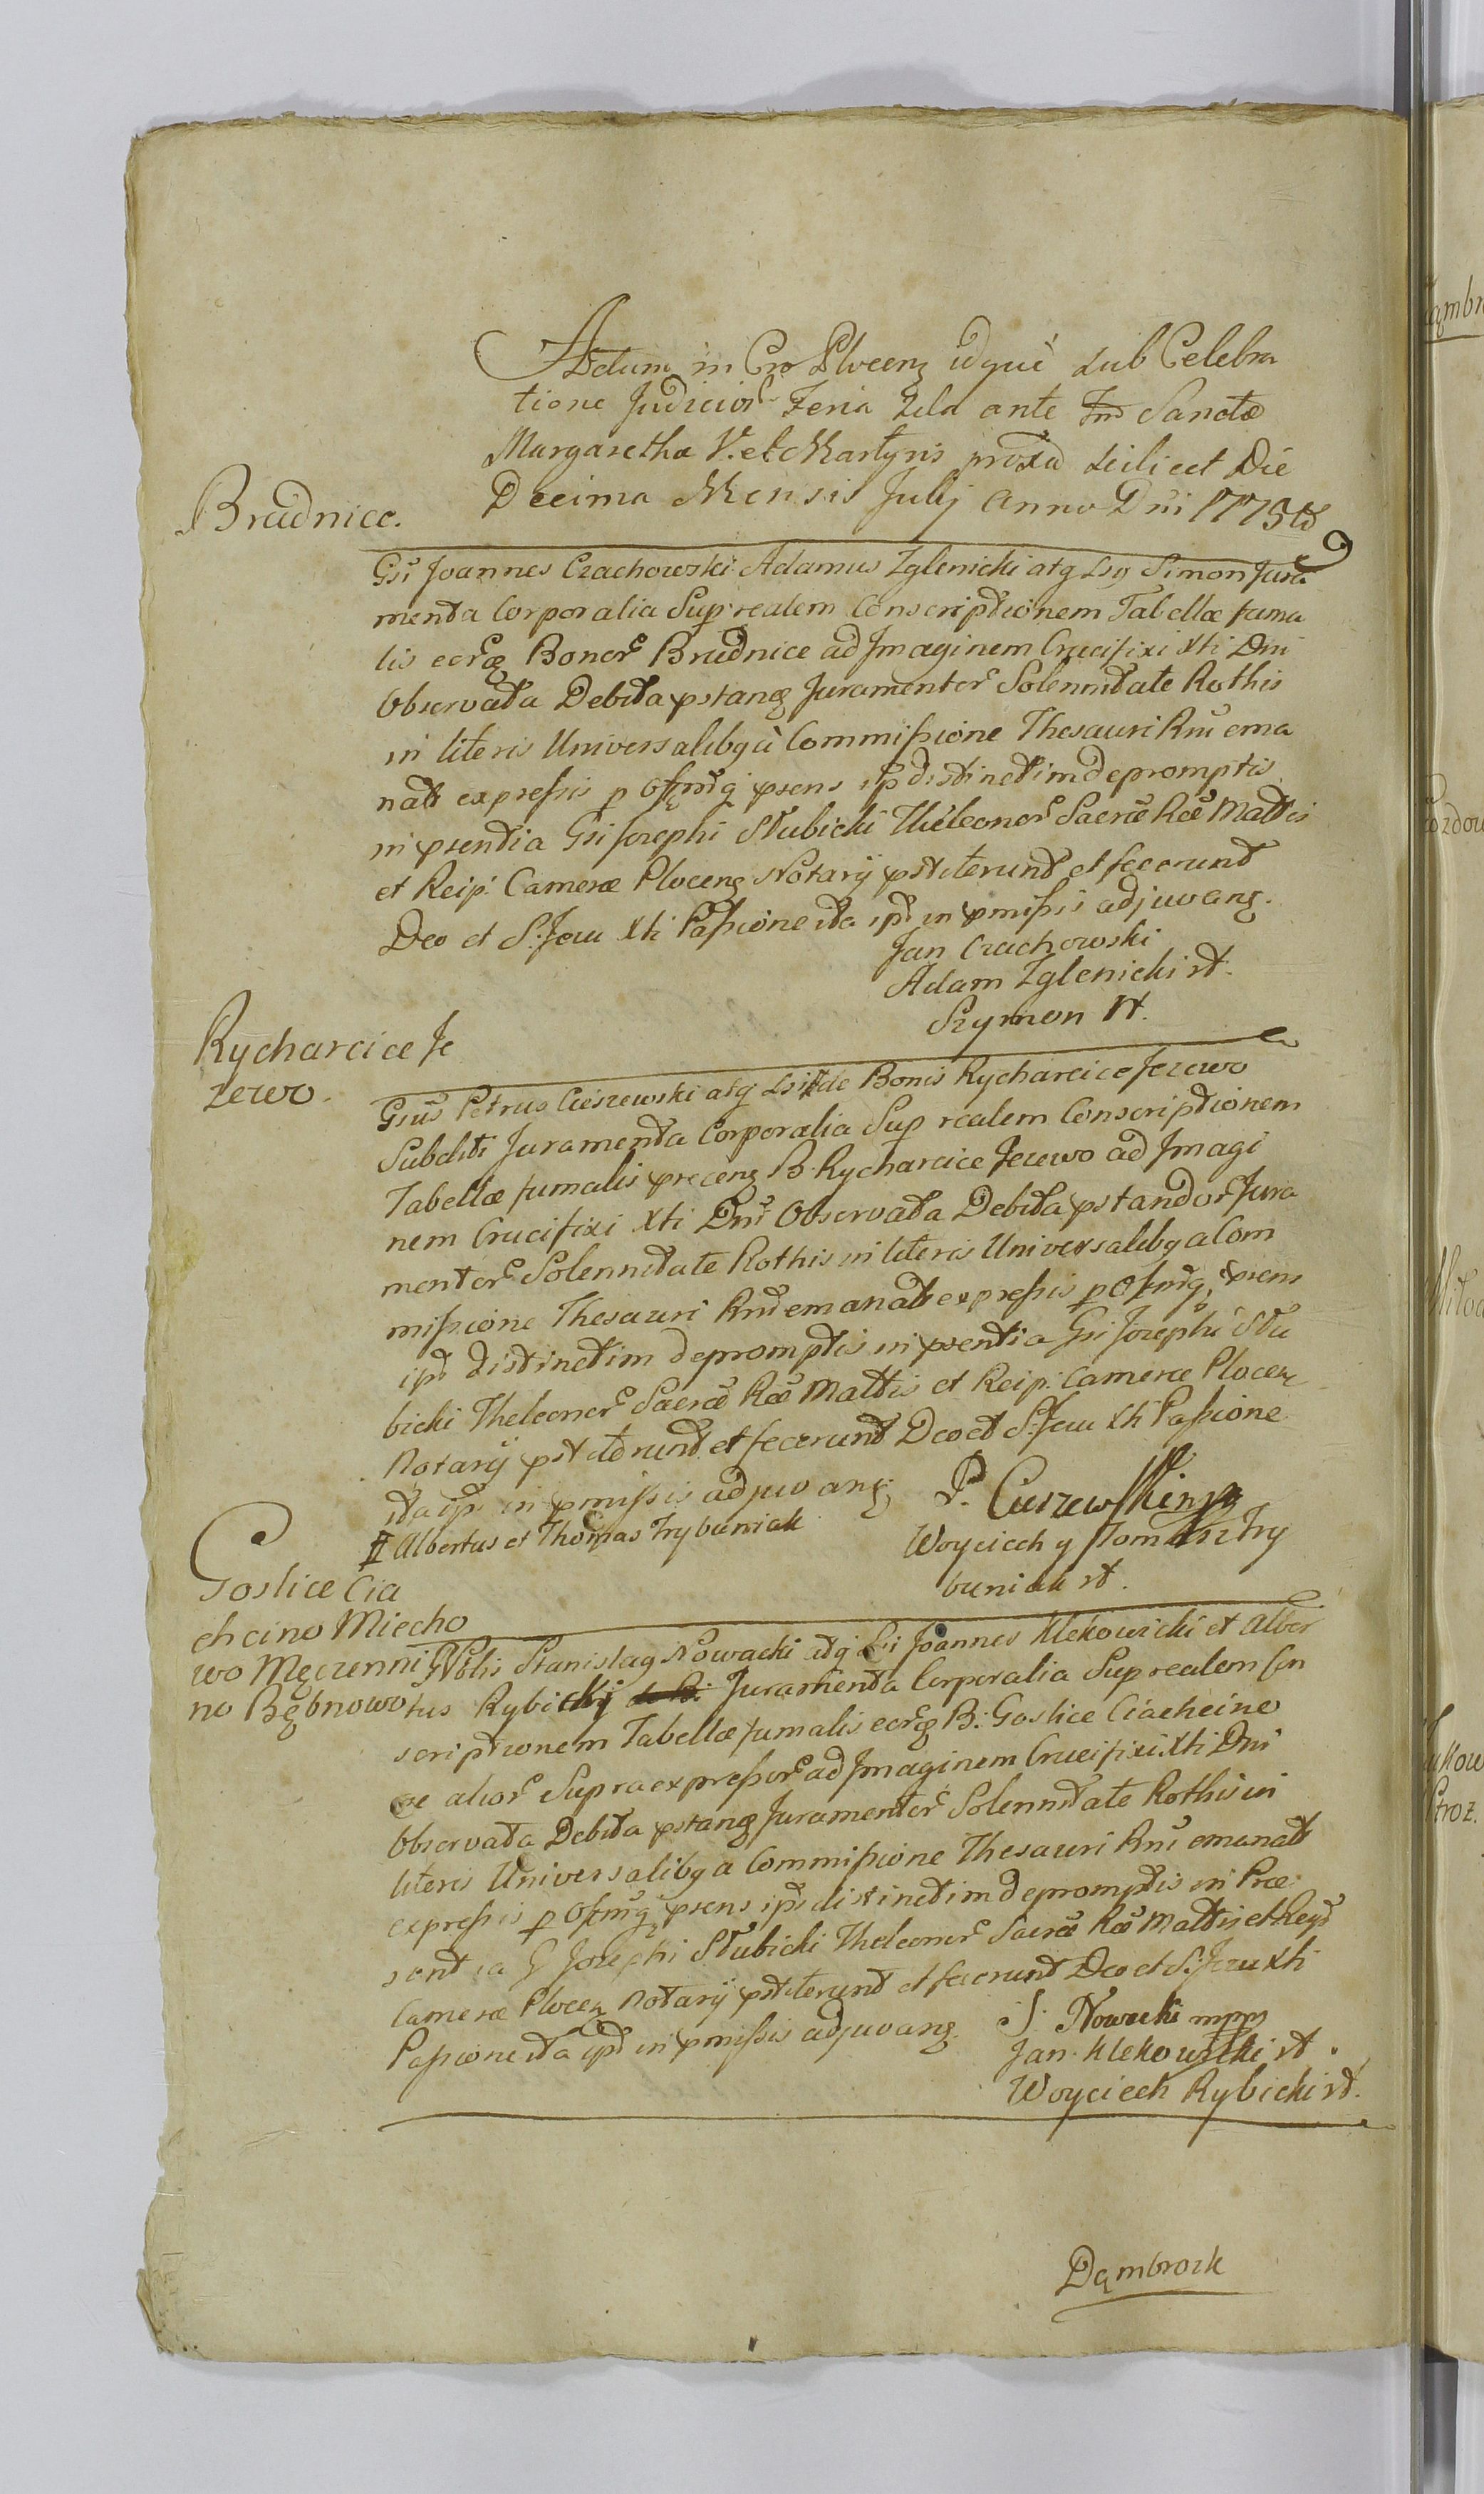 Actum in Cro Plocenз idquè Sub Celebra
tione Judicior Feria 2da ante Fm Sanctæ
Margarethæ V. et Martyris proxa scilicet Die
Decima Mensis Julij Anno Dni 1775to
Brudnice.
Gsi Joannes Czachowski Adamus Zglenicki atq Lsq Simon Jura
menta Corporalia Sup realem Conscriptionem Tabellæ fuma
lis eorq Bonor Brudnice ad Imaginem Crucifixi Xti Dni
Observata Debita pstanq Juramentor Solennitate Rothis
in literis Universalibq à Commissione Thesauri Rni ema
nats expressis p Ofpndq psens ip distinctim depromptis
in psentia Gsi Josephi Stubicki Theleonor Sacræ Ræ Mattis
et Reip: Cameræ Plocenз Notarij pstiterunt et fecerunt
Deo et S. Jesu Xti Passione ita ips in pmissis adjuvanз.
Jan Czachowski
Adam Zglenicki st.
Szymon st.
Rycharcice Je
zewo.
Gsus Petrus Cieszewski atq Lsi de Bonis Rycharcice Jezewo
Subditi Juramenta Corporalia Sup realem Conscriptionem
Tabellæ fumalis precenз B. Rycharcice Jezewo ad Imagi
nem Crucifixi Xti Dni Observata Debita pstandor Jura
mentor Solennitate Rothis in literis Universalibq a Com
missione Thesauri Rni emanats expressis p Ofpndq psens
ips distinctim depromptis in psentia Gsi Josephi Stu
bicki Theleonor Sacræ Ræ Mattis et Reip: Cameræ Plocenз
Notarij pstiterunt et fecerunt Deo et S. Jesu Xti Passione
ita ips in pmissis adjuvanз.
P. Cieszewski mp
Albertus et Thomas Trybuniak
Woyciech y Tomasz Try
buniak st.
Goslice Cia
chcino Miecho
wo Męczenni
no Bębnowo
Nblis Stanislaq Nowacki atq Lsi Joannes Klekowicki et Alber
tus Rybicki Juramenta Corporalia Sup realem Con
scriptionem Tabellæ fumalis eorq B: Goslice Ciachcino
ac alior Supra expressor ad Imaginem Crucifixi Xti Dni
Observata Debita pstanq Juramentor Solennitate Rothis in
literis Universalibq a Commissione Thesauri Rni emanats
expressis p Ofpndq psens ips distinctim depromptis in Præ
sentia G Josephi Stubicki Theleonor Sacræ Ræ Mattis et Reip
Cameræ Plocenз Notarij pstiterunt et fecerunt Deo et S. Jesu Xti
Passione ita ips in pmissis adjuvanз.
S. Nowacki mpp
Jan Klekowicki st.
Woyciech Rybicki st.
Dąmbrosk